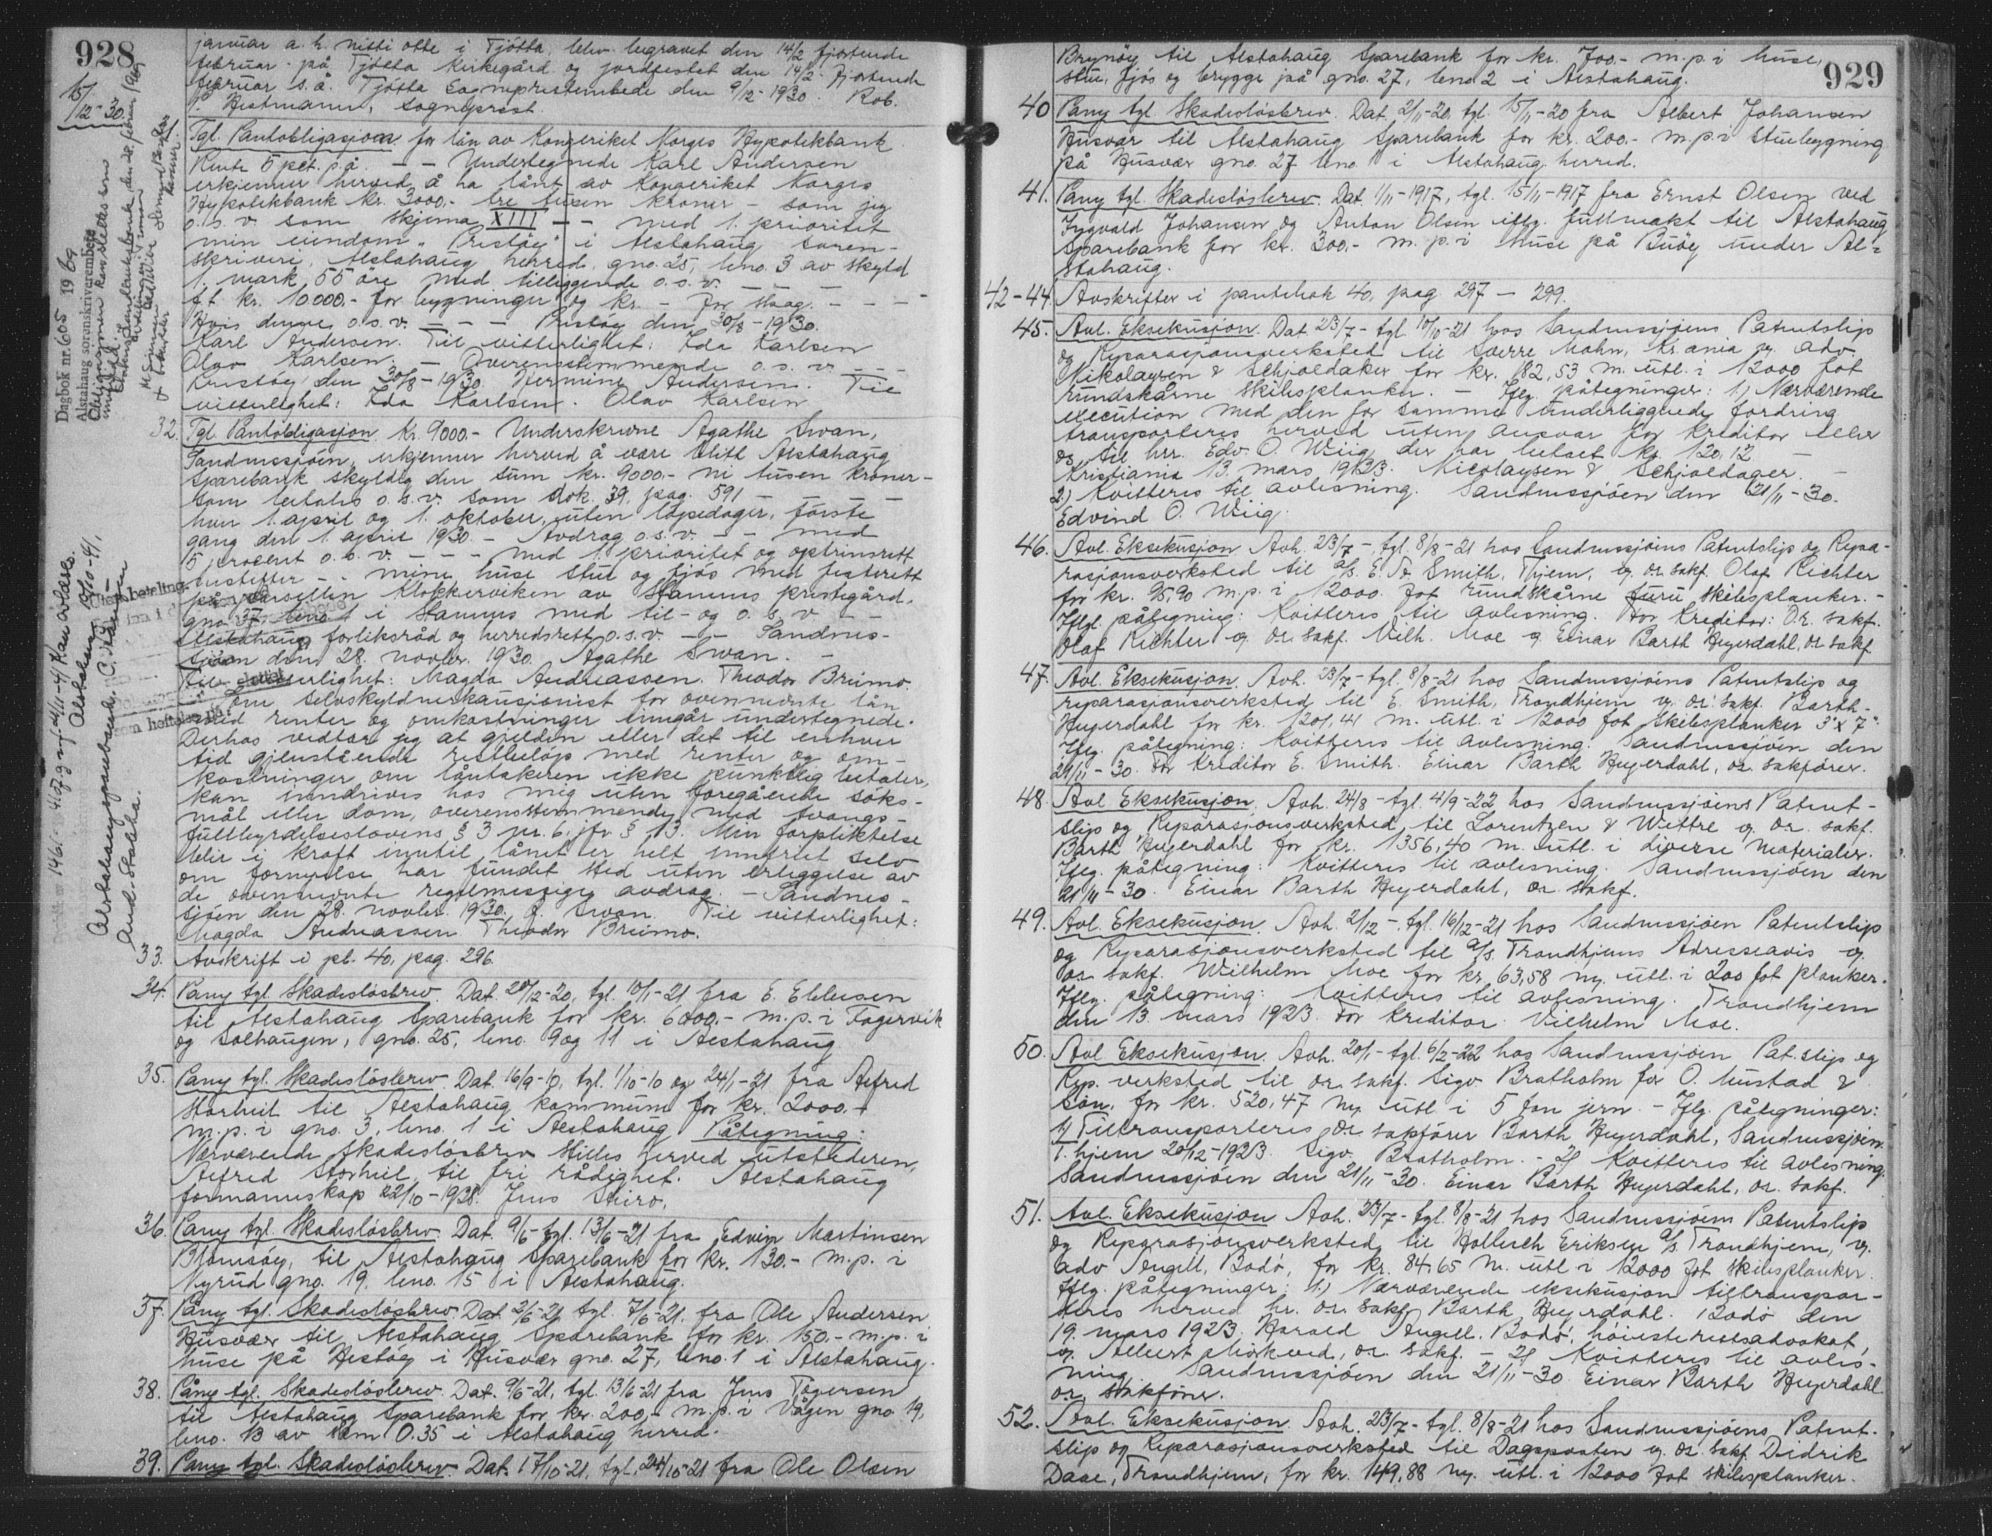 928
januar a. h. nitti otte i Tjötta, blev begravet den 14/2 fjortende
februar på Tjötta kirkegård og jordfestet den 14/2 fjortende
februar s. å. Tjötta Sogneprestembede den 9/12-1930. Rob.
Hestmann, sogneprest.
15/12-30.
Tgl. Pantobligasjon for lån av Kongeriket Norges Hypotekbank
Rente 5 pct. p.å. — — Undertegnede Karl Andersen
erkjenner herved å ha lånt av Kongeriket Norges
Hypotekbank kr. 3000.- tre tusen kroner - som jeg
o.s.v. som skjema XIII — — med 1. prioritet
min eiendom "Pristöy" i Alstahaug soren-
skriveri, Alstahaug herred, gno. 25, bno. 3 av skyld
1 mark 55 öre med tilliggende o.s.v. — — —
f.t. kr. 10000.- for bygninger og kr. — for skog. — — —
Hvis denne o.s.v. — — — Pristöy den 30/8-1930.
Karl Andersen. Til vitterlighet: Ida Karlsen
Olav Karlsen. — Overensstemmende o.s.v. — —
Pristöy den 30/8-1930. Hermine Andersen. Til
vitterlighet: Ida Karlsen. Olav Karlsen
Dagbok nr. 605 1969
Alstahaug sorenskriverembete
32. Tgl. Pantobligasjon. Kr. 9000.- Underskrevne Agathe Swan,
Sandnessjöen, erkjenner herved å være blitt Alstahaug
Sparebank skyldig den sum kr. 9000.- ni tusen kroner -
som betales o.s.v. som dok. 39, pag. 591 — — —
hver 1. april og 1. oktober, uten löpedager, förste
gang den 1. april 1930. — Avdrag o.s.v. — — med
5 procent o.s.v. — — — med 1. prioritet og optrinsrett
bestefter — mine huse stue og fjös med festerett
på parsellen Klokkerviken av Stamnes prestegård,
gno. 37 bno. 1 i Stamnes med til- og o.s.v. —
Alstahaug forliksråd og herredsrett o.s.v. — — Sandnes-
sjöen den 28. novbr. 1930. Agathe Swan. —
Til vitterlighet: Magda Andreassen. Theodor Brunvo.
Som selvskyldnerkausjonist for ovennevnte lån
med renter og omkostninger inngår undertegnede.
Derhos vedtar jeg at gjelden eller det til enhver
tid gjenstående restbelöp med renter og om-
kostninger, om låntakeren ikke punktlig betaler,
kan inndrives hos mig uten foregående söks-
mål eller dom, overensstemmende med tvangs-
fullbyrdelseslovens § 3 nr. 6, jfr. § 13. Min forpliktelse
blir i kraft inntil lånet er helt innfriet selv
om fornyelse har fundet sted uten erleggelse av
de ovennevnte regelmessige avdrag. — Sandnes-
sjöen den 28. novbr. 1930. A. Swan. Til vitterlighet:
Magda Andreassen Theodor Brunvo.
33. Avskrift i pb. 40, pag. 296.
34. Pany tgl. Skadeslösbrev. Dat. 20/12-20, tgl. 10/1-21 fra E. Ebbesen
til Alstahaug Sparebank for kr. 6000.- m.p. i Fagervik
og Solhaugen, gno. 25, bno. 9 og 11 i Alstahaug
35. Pany tgl. Skadeslösbrev. Dat. 16/9-10, tgl. 1/10-10 og 24/1-21 fra Alfred
Storheil til Alstahaug kommune for kr. 2000.-
m.p. i gno. 3, bno. 1 i Alstahaug. Påtegning:
Nærværende skadeslösbrev stilles herved utstederen,
Alfred Storheil til fri rådighet. Alstahaug
formannskap 22/10-1928. Jens Stiro.
36. Pany tgl. Skadeslösbrev. Dat. 9/6- tgl. 13/6-21 fra Edvin Martinsen
Blomsöy, til Alstahaug Sparebank for kr. 130.- m.p. i
Nyrud gno. 19, bno. 15 i Alstahaug.
37. Pany tgl. Skadeslösbrev. Dat. 2/6-21, tgl. 7/6-21 fra Ole Andersen
Husvær til Alstahaug Sparebank for kr. 150.- m.p. i
huse på Hestöy i Husvær gno. 27, bno. 1 i Alstahaug.
38. Pany tgl. Skadeslösbrev. Dat. 9/6-21, tgl. 13/6-21 fra Jens Tögersen
til Alstahaug Sparebank for kr. 200.- m.p. i Vågen gno. 19,
bno. 13 av skm 0.35 i Alstahaug herred.
39. Pany tgl. Skadeslösbrev. Dat. 17/10-21, tgl. 24/10-21 fra Ole Olsen
929
Brynöy, til Alstahaug Sparebank for kr. 700.- m.p. i huse,
stue, fjös og brygge på gno. 27, bno. 2 i Alstahaug.
40. Pany tgl. Skadeslösbrev. Dat. 2/11-20, tgl. 15/11-20 fra Albert Johansen
Husvær til Alstahaug Sparebank for kr. 200.- m.p. i stuebygning
på Husvær gno. 27 bno. 1 i Alstahaug herred.
41. Pany tgl. Skadeslösbrev. Dat. 1/11-1917, tgl. 15/11-1917 fra Ernst Olsen ved
Ingvald Johansen og Anton Olsen iflg. fullmakt til Alstahaug
Sparebank for kr. 300.- m.p. i huse på Buöy under Al-
stahaug.
42-44. Avskrifter i pantebok 40, pag 297 — 299.
45. Avl. Eksekusjon. Dat. 23/7 - tgl. 10/10-21 hos Sandnessjöens Patentslip
og Reparasjonsverksted til Sverre Mohn, Kr.ania v. adv.
Nikolaysen & Schjoldager for kr. 182,53 m. utl. i 12000 fot
rundskårne skibsplanker. — Iflg. påtegninger: 1) Nærværende
execution med den for samme underliggende fordring
transporteres herved uten ansvar for kreditor eller
os til hr. Edv. O. Wiig der har betalt kr. 120,12 —
Kristiania 13 mars 1923. Nicolaysen & Schjoldager. —
2) Kvitteres til avlesning. Sandnessjöen den 21/11-30.
Edvind O. Wiig.
46. Avl. Eksekusjon. Avh. 23/7 - tgl. 8/8-21 hos Sandnessjöens Patentslip og Repa-
rasjonsverksted til A/S. E. A. Smith, T.hjem, v. or. sakf. Olaf Richter
for kr. 95,90 m.p. i 12000 fot rundskårne furu skibsplanker. —
Iflg. påtegning: Kvitteres til avlesning. For kreditor: O.r. sakf.
Olaf Richter v. or. sakf. Vilh. Moe v. Einar Barth Heyerdahl, or. sakf.
47. Avl. Eksekusjon. Avh. 23/7 - tgl. 8/8-21 hos Sandnessjöens Patentslip og
reparasjonsverksted til E. Smith, Trondhjem v. or. sakf. Barth-
Heyerdahl for kr. 1201,41 m. utl. i 12000 fot skibsplanker 3" x 7".
Iflg. påtegning: Kvitteres til avlesning. Sandnessjöen den
21/11-30. For kreditor E. Smith. Einar Barth Heyerdahl, or. sakförer.
48. Avl. Eksekusjon. Avh. 24/8 - tgl. 4/9-22 hos Sandnessjöens Patent-
slip og Reparasjonsverksted, til Lorentzen & Wettre v. or. sakf.
Barth Heyerdahl for kr. 1356,40 m. utl. i diverse materialer.
Iflg. påtegning: Kvitteres til avlesning. Sandnessjöen den
21/11-30. Einar Barth Heyerdahl, or. sakf.
49. Avl. Eksekusjon. Avh. 2/12 - tgl. 16/12-21 hos Sandnessjöen Patentslip
og Reparasjonsverksted til A/S Trondhjems Adresseavis v.
or. sakf. Wilhelm Moe for kr. 63,58 m. utl. i 200 fot planker.
Iflg. påtegning: Kvitteres til avlesning. Trondhjem
den 13. mars 1923. For kreditor. Vilhelm Moe.
50. Avl. Eksekusjon. Avh. 20/1 - tgl. 6/2-22 hos Sandnessjöen Pat.slip og
Rep. verksted til or. sakf. Sigv. Bratholm for O. Mustad &
Sön, for kr. 520,47 m. utl. i 5 ton jern. — Iflg. påtegninger:
1) Tiltransporteres or. sakförer Barth Heyerdahl, Sandnessjöen.
T.hjem 20/12-1923. Sigv. Bratholm. — 2) Kvitteres til avlesning.
Sandnessjöen den 21/11-30. Einar Barth Heyerdahl, or. sakf.
51. Avl. Eksekusjon. Avh. 23/7 - tgl. 8/8-21 hos Sandnessjöens Patentslip
og Reparasjonsverksted til Hollesch Eriksen A/S, Trondhjem, v.
adv. Angell, Bodö, for kr. 84,65 m. utl. i 12000 fot skibsplanker.
Iflg. påtegninger: 1) Nærværende eksekusjon tiltranspor-
teres herved hr. or. sakf. Barth Heyerdahl. Bodö den
19. mars 1923. Harald Angell. Bodö, höiesterettsadvokat,
v. Albert Mörkved, or. sakf. — 2) Kvitteres til avles-
ning. Sandnessjöen den 21/11-30. Einar Barth Heyerdahl.
or. sakförer.
52. Avl. Eksekusjon. Avh. 23/7 - tgl. 8/8-21 hos Sandnessjöens Patent-
slip og Reparasjonsverksted til Dagsposten v. or. sakf. Didrik
Daae, Trondhjem, for kr. 149,88 m. utl. i 12000 fot skibsplanker.